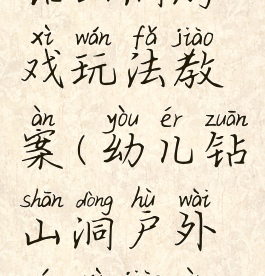 xì wán fǎ jiào
戏玩法教
àn yòu ér zuān
案(幼儿钻
shān dòng hù wài
山洞户外